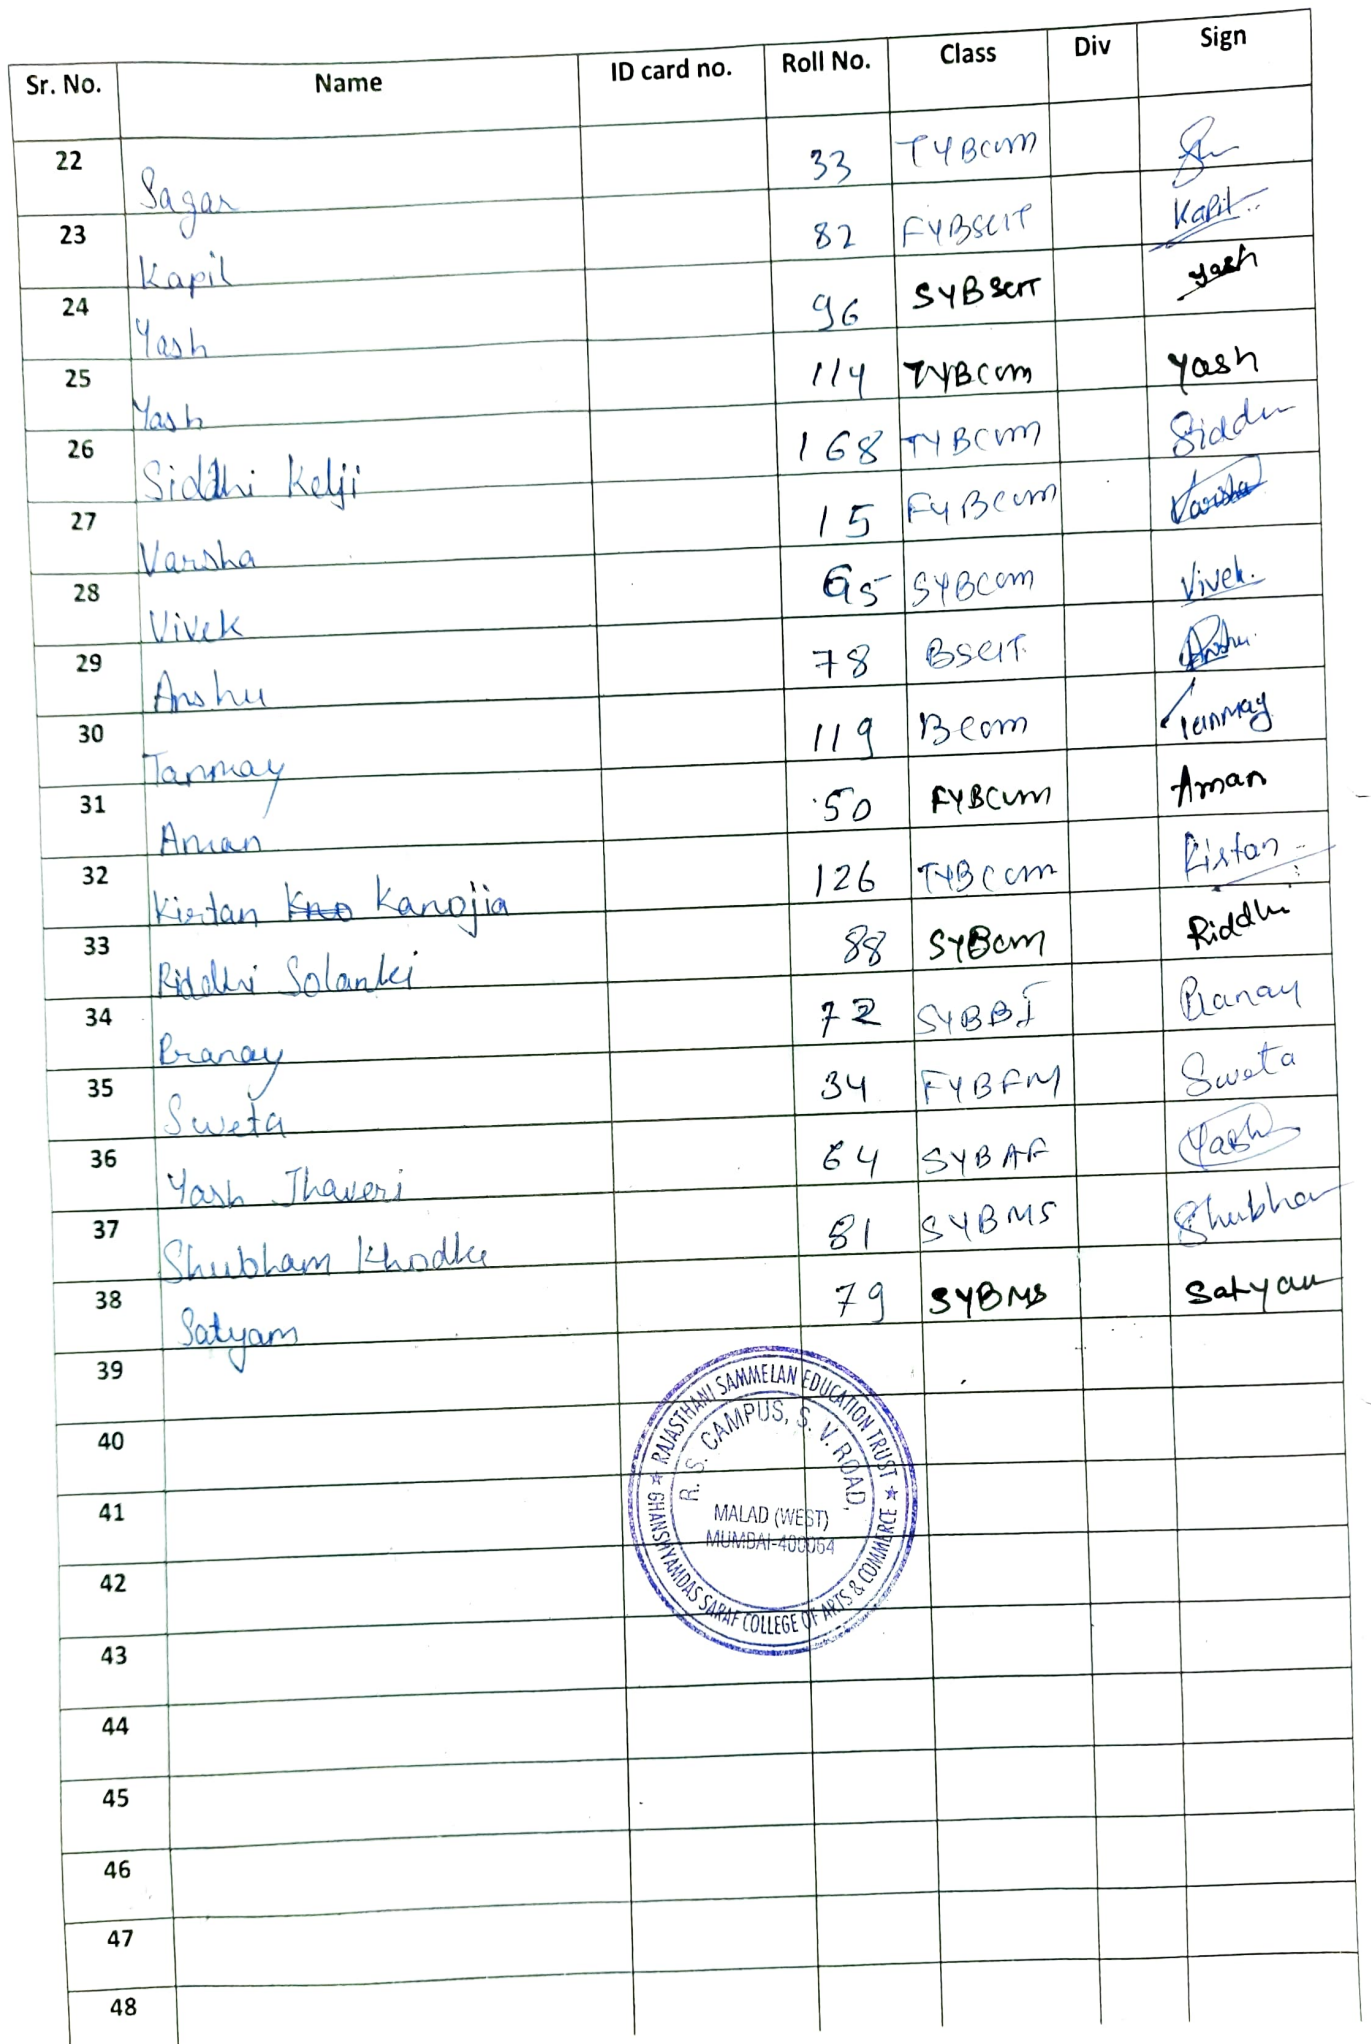 Sr. No. Name ID card no. Roll No. Class Div Sign
22 Sagar 33 TYBCom
23 Kapil 82 FYBSCIT Kapil
24 Yash 96 SYBSCIT Yash
25 Yash 114 TYBCom Yash
26 Siddhi Kelji 168 TYBCom Siddhi
27 Varsha 15 FYBCom Varsha
28 Vivek 65 SYBCom Vivek
29 Anshu 78 BSCIT Anshu
30 Tanmay 119 BCom Tanmay
31 Aman 50 FYBCom Aman
32 Kirtan Kanojia 126 TYBCom Kirtan
33 Riddhi Solanki 88 SYBCom Riddhi
34 Pranay 72 SYBBI Pranay
35 Sweta 34 FYBFM Sweta
36 Yash Jhaveri 64 SYBAF Yash
37 Shubham Khodke 81 SYBMS Shubham
38 Satyam 79 SYBMS Satyam
39
40
41
42
43
44
45
46
47
48
RAJASTHANI SAMMELAN EDUCATION TRUST
R. S. CAMPUS, S. V. ROAD,
MALAD (WEST)
MUMBAI-400064
GHANSHYAMDAS SARAF COLLEGE OF ARTS & COMMERCE